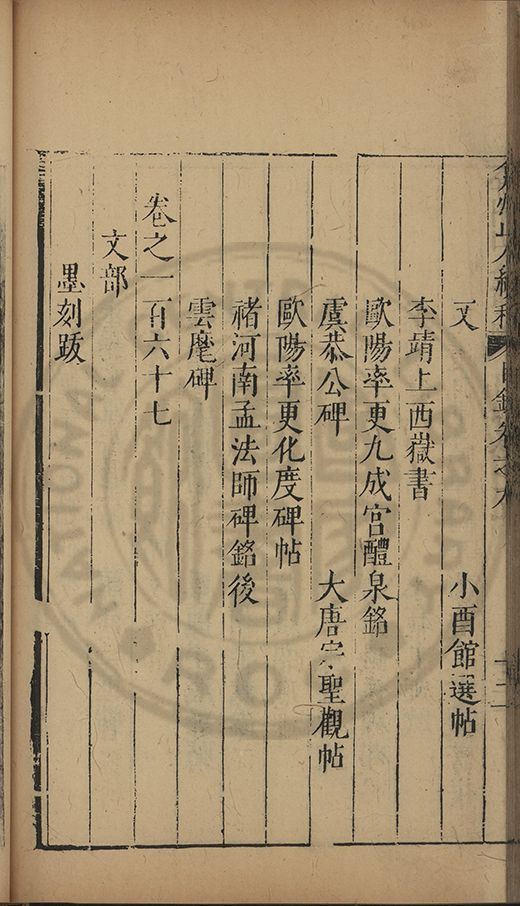 弇州山人續稿 目錄卷之九 十二
又 小酉館選帖
李靖上西嶽書
歐陽率更九成宮醴泉銘
虞恭公碑 大唐宗聖觀帖
歐陽率更化度碑帖
褚河南孟法師碑銘後
雲麾碑
卷之一百六十七
文部
墨刻跋